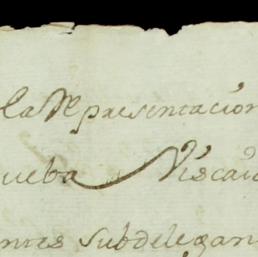 la Representacion
ueba Viscai
ntes subdelegan